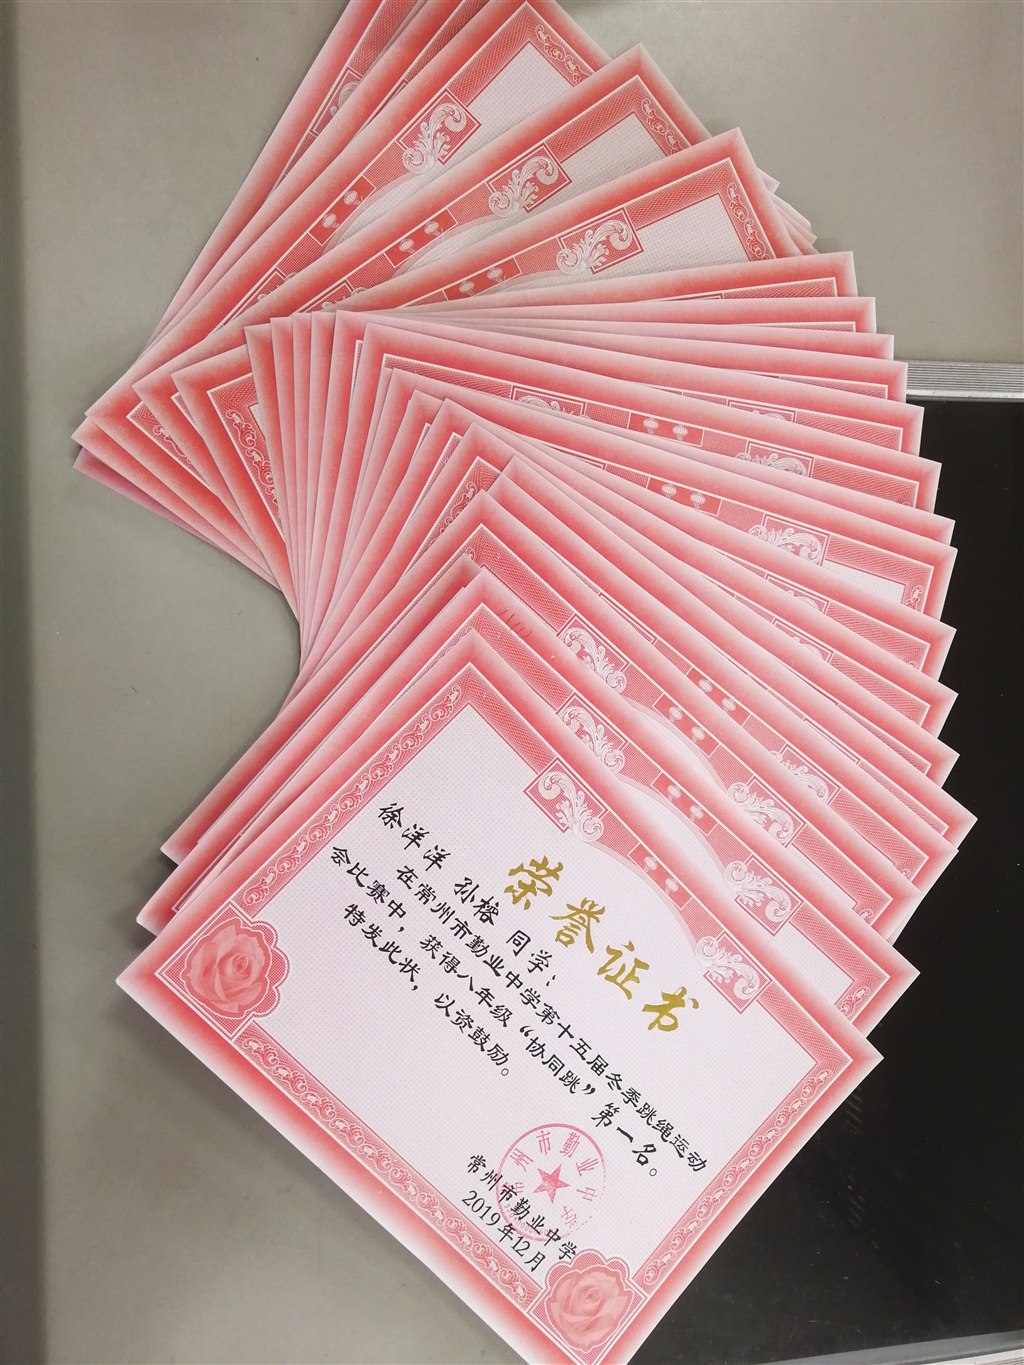 荣誉证书
徐洋洋 孙榕 同学：
在常州市勤业中学第十五届冬季跳绳运动
会比赛中，获得八年级“协同跳”第一名。
特发此状，以资鼓励。
常州市勤业中学
2019年12月
常州市勤业中学